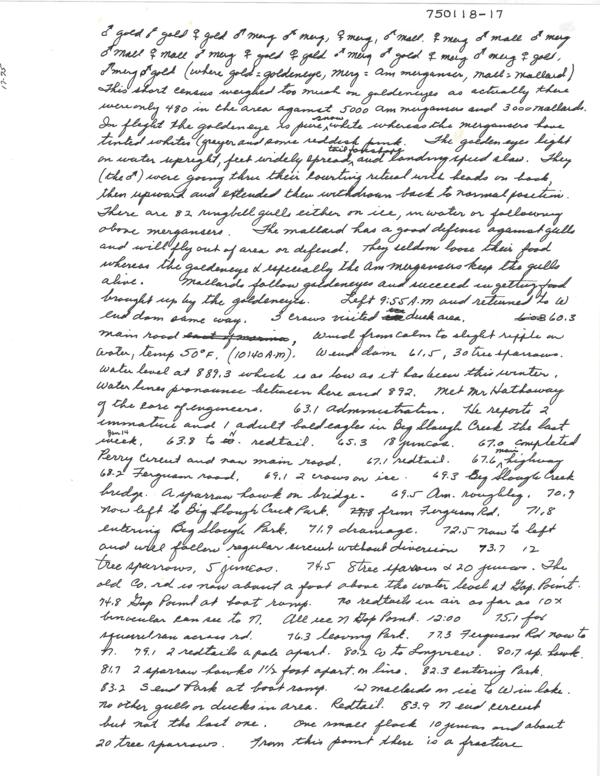 750118-17
17-35
♂ gold ♂ gold ♀ gold ♂ merg ♂ merg, ♀ merg, ♂ mall. ♀ merg ♂ mall ♂ merg
♂ mall ♀ mall ♂ merg ♀ gold ♀ gold ♂ merg ♂ gold ♀ merg ♂ merg ♀ gold,
♂ merg ♂ gold (where gold = goldeneye, merg = Am merganser, mall = mallard)
This short census weighed too much on goldeneyes as actually there
were only 480 in the area against 5000 Am mergansers and 3000 mallards.
In flight the goldeneye is pure snow white whereas the mergansers have
tinted whites (greyer and some reddish pink. The goldeneyes light
on water upright, feet widely spread, tail and landing speed slow. They
(the ♂) were going thru their courting retual with heads on back,
then upward and extended then withdrawn back to normal position.
There are 82 ringbell gulls either on ice, in water or following
above mergansers. The mallard has a good defense against gulls
and will fly out of area or defend. They seldom loose their food
whereas the goldeneye & especially the Am mergansers keep the gulls
alive. Mallards follow goldeneyes and succeed in getting food
brought up by the goldeneyes. Left 9:55 A.M and returned to W
end dam same way. 3 crows visited duck area. 60.3
main road east of marina, Wind from calm to slight ripple on
water, temp 50°F. (10:40 A.M). W end dam 61.5, 30 tree sparrows.
Water level at 889.3 which is as low as it has been this winter.
Water lines pronounce between here and 892. Met Mr Hathaway
of the core of engineers. 63.1 Administration. He reports 2
immature and 1 adult bald eagles in Big Slough Creek the last
week. Jan 14 63.8 to N. redtail. 65.3 18 juncos. 67.0 completed
Perry Circuit and now main road. 67.1 redtail. 67.6 main highway
68.2 Ferguson road. 69.1 2 crows on ice. 69.3 Big Slough Creek
bridge. A sparrow hawk on bridge. 69.5 Am. roughleg. 70.9
now left to Big Slough Creek Park. from Ferguson Rd. 71.8
entering Big Slough Park. 71.9 drainage. 72.5 now to left
and will follow regular circuit without diversion 73.7 12
tree sparrows, 5 juncos. 74.5 8 tree sparrow & 20 juncos. The
old Co. rd is now about a foot above the water level at Gap. Point.
74.8 Gap Point at boat ramp. No redtails in air as far as 10x
binocular can see to N. All ice N Gap Point. 12:00 75.1 fox
squirrel ran across rd. 76.3 leaving Park. 77.3 Ferguson Rd now to
N. 79.1 2 redtails a pole apart. 80.2 Co to Longview. 80.7 sp. hawk.
81.7 2 sparrow hawks 1½ foot apart, on line. 82.3 entering Park.
83.2 S end Park at boat ramp. 12 mallards on ice to W in lake.
No other gulls or ducks in area. Redtail. 83.9 N end circuit
but not the last one. One small flock 10 juncos and about
20 tree sparrows. From this point there is a fracture